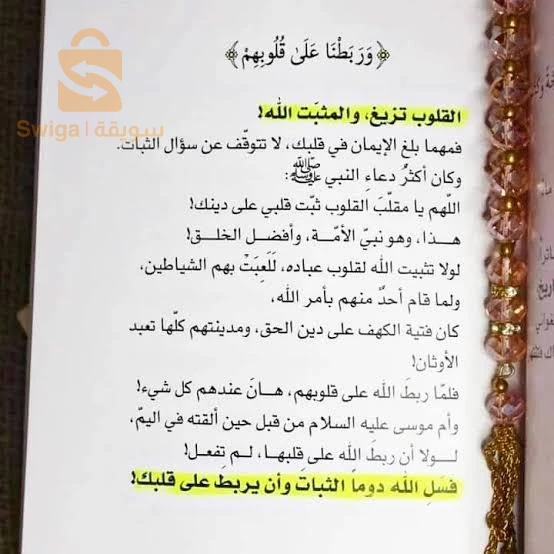 ﴿وَرَبَطْنَا عَلَىٰ قُلُوبِهِمْ﴾
القلوب تزيغ، والمثبَت الله!
فمهما بلغ الإيمان في قلبك، لا تتوقّف عن سؤال الثبات.
وكان أكثرُ دعاءِ النبي ﷺ:
اللّهم يا مقلّبَ القلوب ثبّت قلبي على دينك!
هذا، وهو نبيّ الأمّة، وأفضل الخلق!
لولا تثبيت الله لقلوب عباده، لَلَعِبَتْ بهم الشياطين،
ولما قام أحدٌ منهم بأمر الله،
كان فتية الكهف على دين الحق، ومدينتهم كلّها تعبد
الأوثان!
فلمّا ربطَ الله على قلوبهم، هانَ عندهم كل شيء!
وأم موسى عليه السلام من قبل حين ألقته في اليمّ،
لولا أن ربطَ الله على قلبها، لم تفعل!
فسَلِ الله دوماً الثبات وأن يربط على قلبك!
Swiga | سويقة